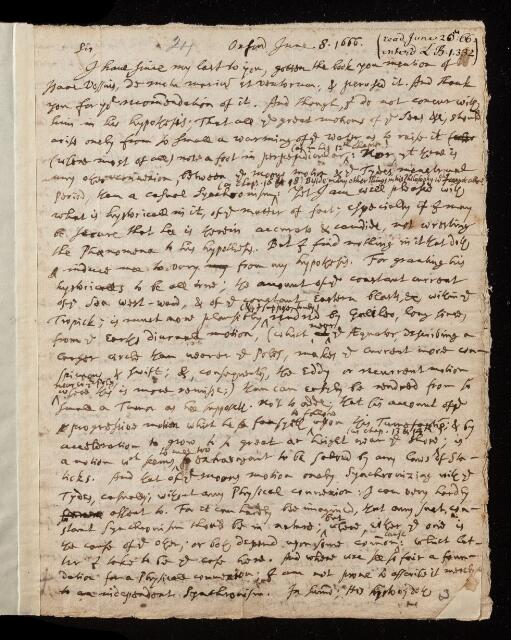 24
Oxford June. 8. 1666.
(read June 26. 66.
enter'd L.B. 1. 332
Sir
I have since my last to you, gotten the book you mention of
Isaac Vossius, De motu marium et ventorum, & perused it. And thank
you for ye recommendation of it. And though, I do not concur with
him in his hypothesis: That all ye great motions of ye Seas &c, should
arise onely from so small a warming of ye water as to raise it
(where most of all) not a foot in perpendicular;
(as in his 12th chapter)
Nor, yt there is
any other connexion, between ye moons motion & ye Tydes menstrual
period, than a casual Synchronism;
(as chap. 18.
Yet I am well pleased with
what is hystoricall in it, of ye matter of fact: especially if I may
be secure that he is therein accurate & candide, not wresting
the Phænomena to his hypothesis. But I find nothing in it that doth
induce mee to vary from my hypothesis. For granting his
hystoricalls to be all true; the account of ye constant current
of ye Sea west-ward, & of ye constant Eastern blasts, &c within ye
Tropicks; is much more plausibly rendred by Galileo, long since,
from ye Earths diurnal motion, (which near ye Æquator describing a
larger circle than nearer ye Poles, makes ye current more con-
spicuous & swift; & consequently, the Eddy or recurrent motion
is more remisse;) than can easily be rendred from so
small a Tumor as he supposeth. Not to adde; that his account of ye
progressive motion which he fansieth to follow upon this Tumefaction, & by
acceleration to grow to so great a hight near ye Shore;
(as chap. 13 & 14.)
is
a motion wch seems to mee too extravagant to be salved by any laws of Sta-
ticks. And that of ye moons motion onely Synchronizing with ye
Tydes, casually, without any Physical connexion; I can very hardly
assent to. For it can hardly be imagined, that any such con-
stant Synchronism should be in nature; but where, either ye one is
the cause of ye other, or both depend upon some common cause: which lat-
ter I take to be ye case here. And where wee see so fair a foun-
dation for a Physical connexion, I am not prone to ascribe it meerly
to an independent Synchronism. In Summ; His hystory doth